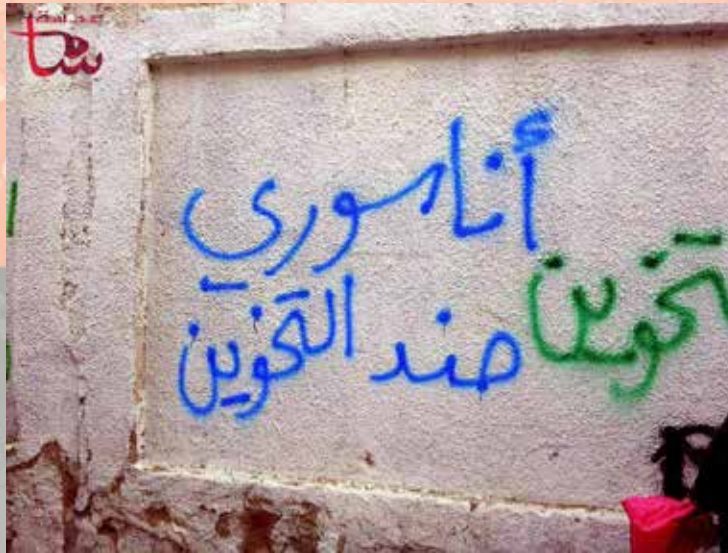 أنا سوري
ضد التخوين
تخوين